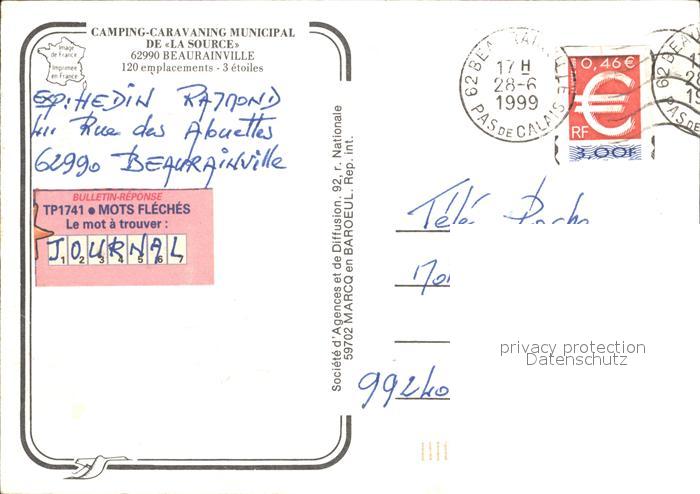 CAMPING-CARAVANING MUNICIPAL
DE «LA SOURCE»
62990 BEAURAINVILLE
120 emplacements - 3 étoiles
Image
de France
Imprimée
en France
EXP: HEDIN RAYMOND
Rue des Alouettes
62990 BEAURAINVILLE
BULLETIN-RÉPONSE
TP1741 ● MOTS FLÉCHÉS
Le mot à trouver :
JOURNAL
1 2 3 4 5 6 7
Société d'Agences et de Diffusion. 92, r. Nationale
59702 MARCQ en BAROEUL. Rep. int.
62 BEAURAINVILLE
17 H
28-6
1999
PAS DE CALAIS
0,46€
RF
3,00F
62 BEAU
17
28
199
PAS DE CAL
Télé Poche
99240
privacy protection
Datenschutz